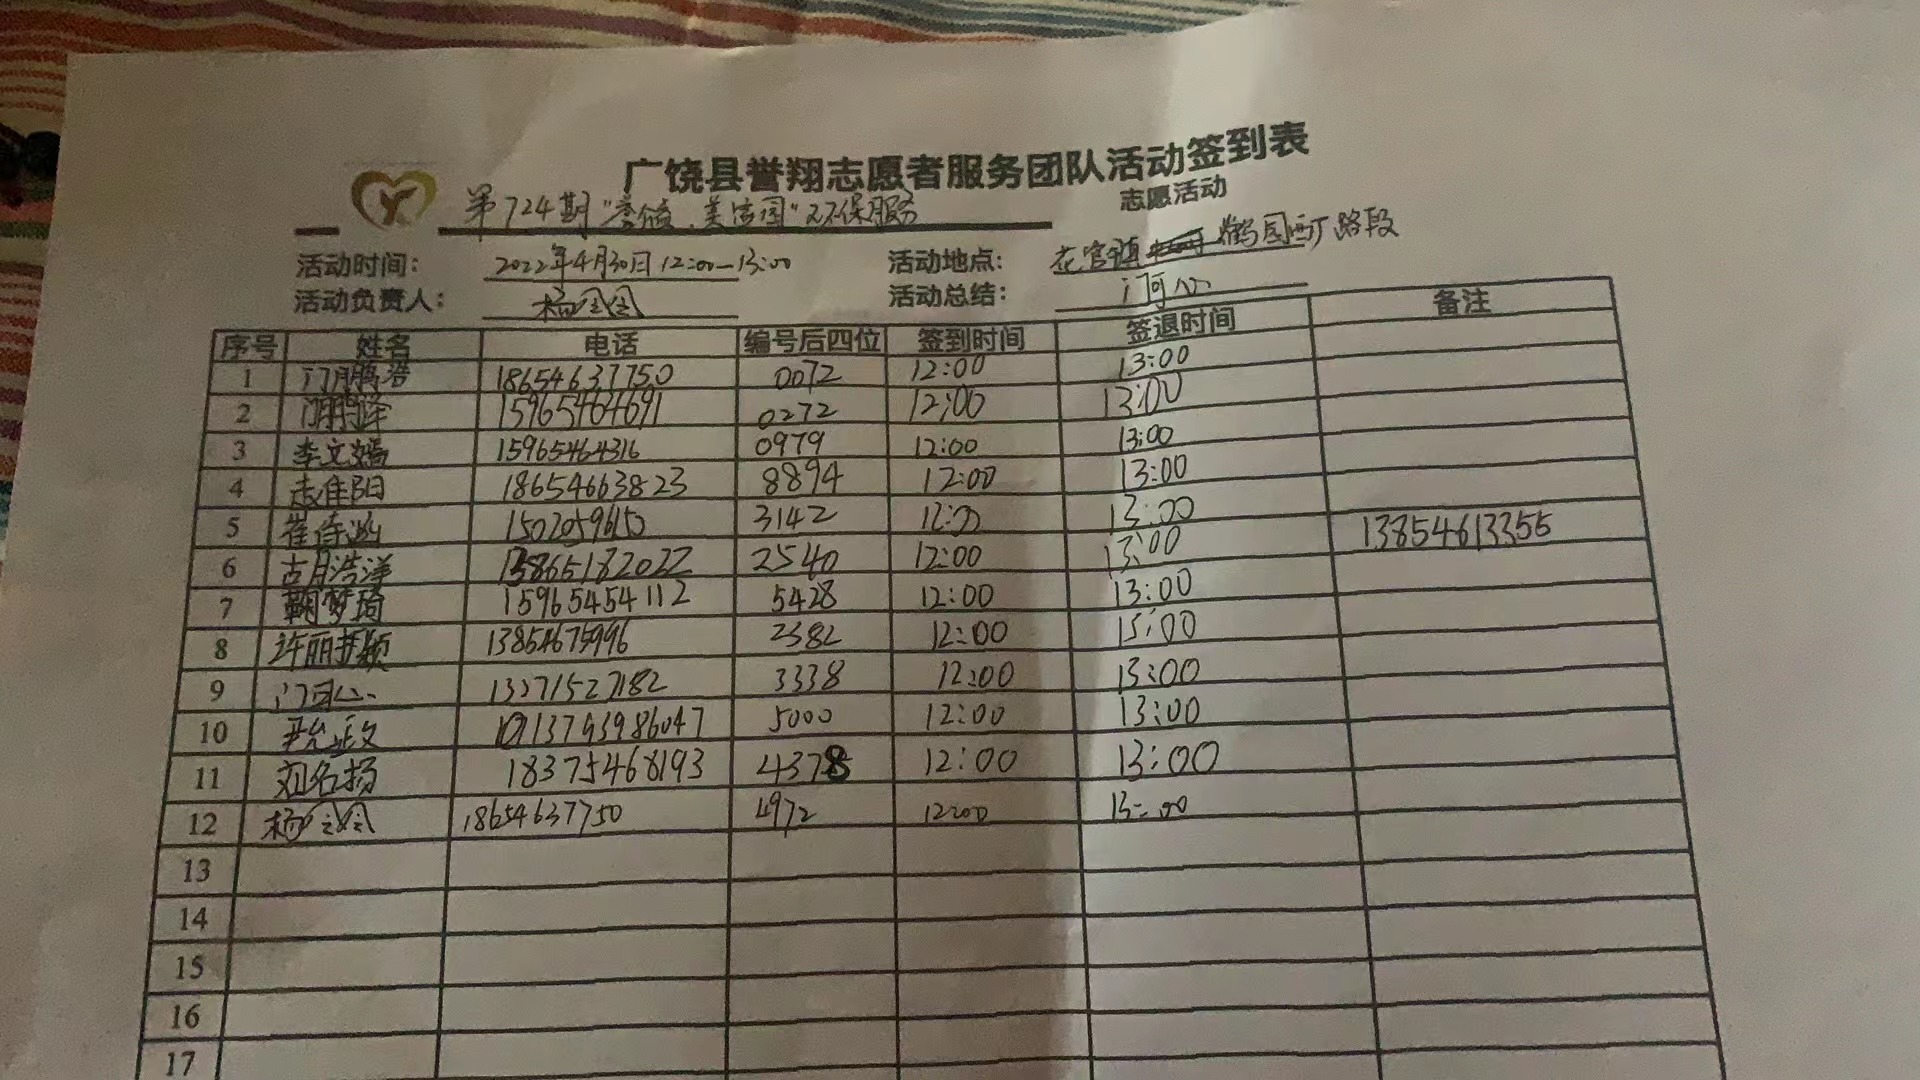 广饶县誉翔志愿者服务团队活动签到表
第724期"美 "环保服务 志愿活动
活动时间: 2022年4月30日12:00—13:00 活动地点: 花官镇 路段
活动负责人: 杨 活动总结:
序号 姓名 电话 编号后四位 签到时间 签退时间 备注
1 门鹏浩 18654637750 0072 12:00 13:00
2 门鹏泽 15965464691 0272 12:00 13:00
3 李文嫣 15965464316 0979 12:00 13:00
4 佳阳 18654663823 8894 12:00 13:00
5 崔 1502059650 3142 12:00 13:00 13854613355
6 胡浩洋 13865182022 2540 12:00 13:00
7 鞠梦琦 15965454112 5428 12:00 13:00
8 许丽颖 13854675996 2382 12:00 13:00
9 门 13271527182 3338 12:00 13:00
10 13793986047 5000 12:00 13:00
11 刘名扬 18375468193 4378 12:00 13:00
12 杨 18654637750 4972 12:00 13:00
13
14
15
16
17